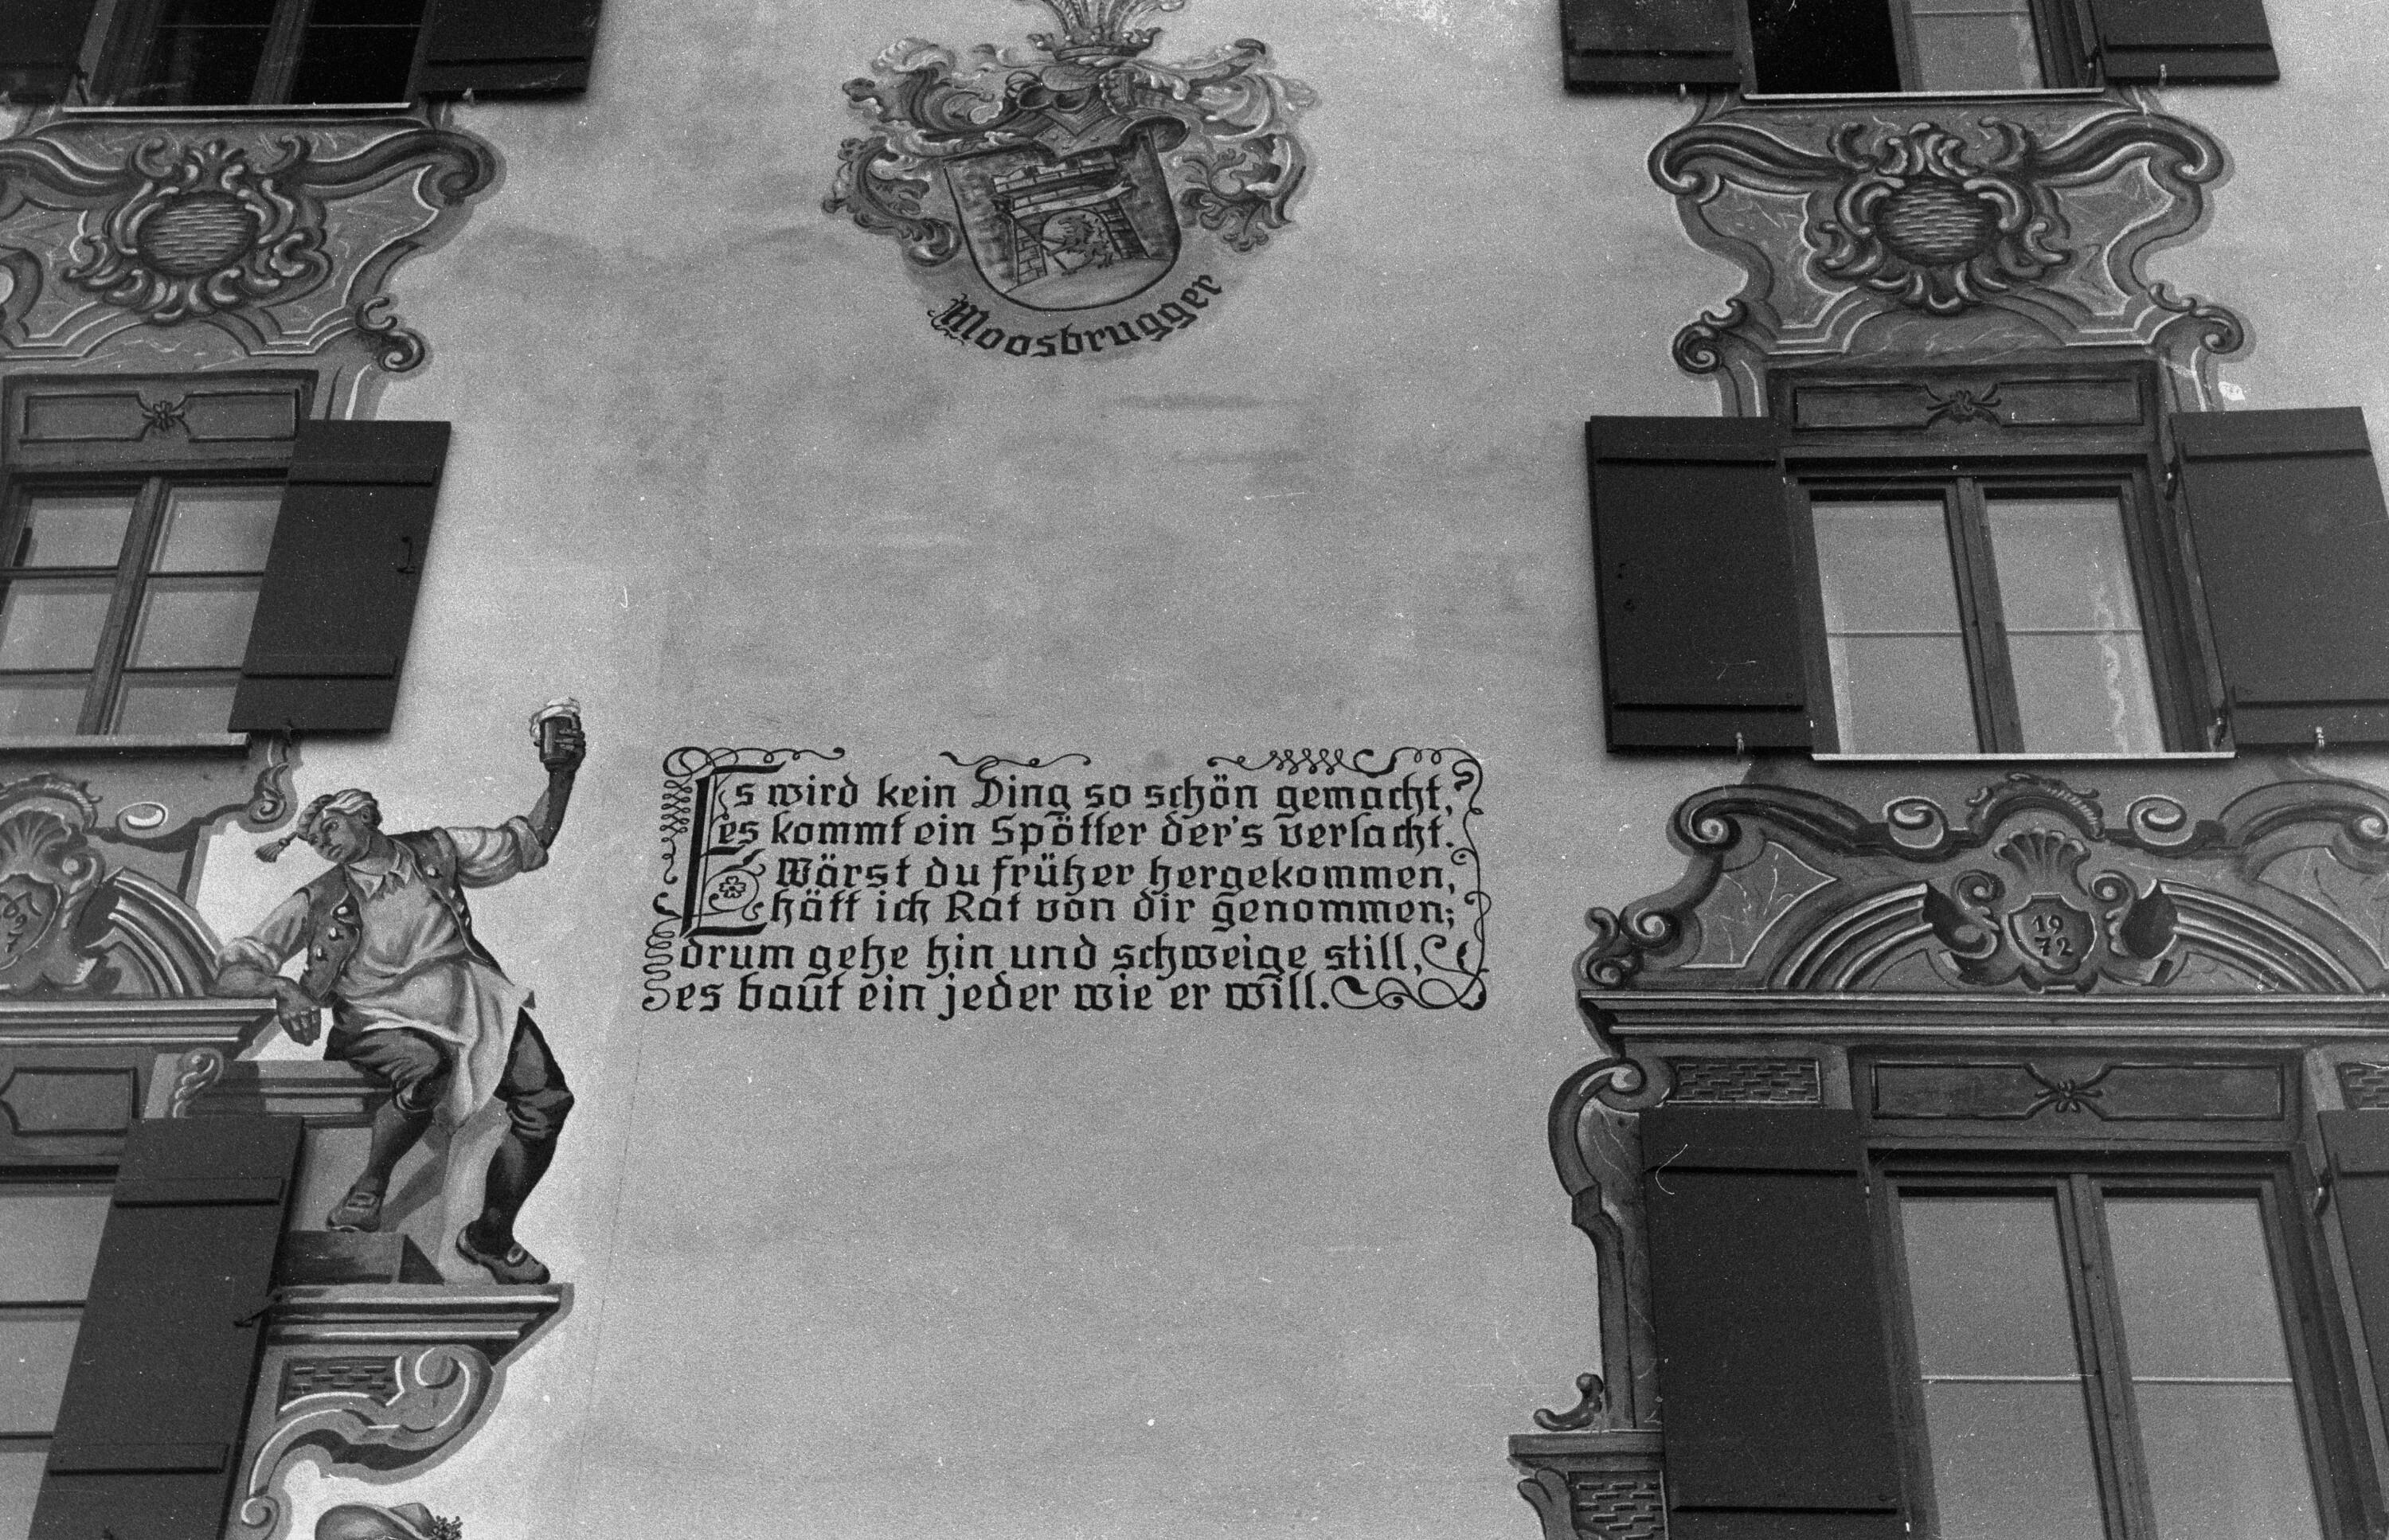 Moosbrugger
Es wird kein Ding so schön gemacht,
es kommt ein Spötter der's verlacht.
Wärst du früher hergekommen,
hätt ich Rat von dir genommen;
drum gehe hin und schweige still,
es baut ein jeder wie er will.
19
72